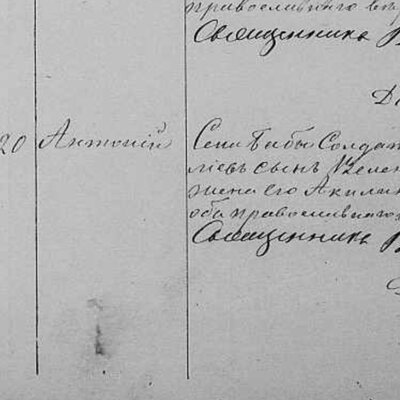 православнаго въ
Священника
20 Антоній Села Бабы Солдат
ліевъ сынъ Зелен
жена его Акилин
оба православнаго
Священника